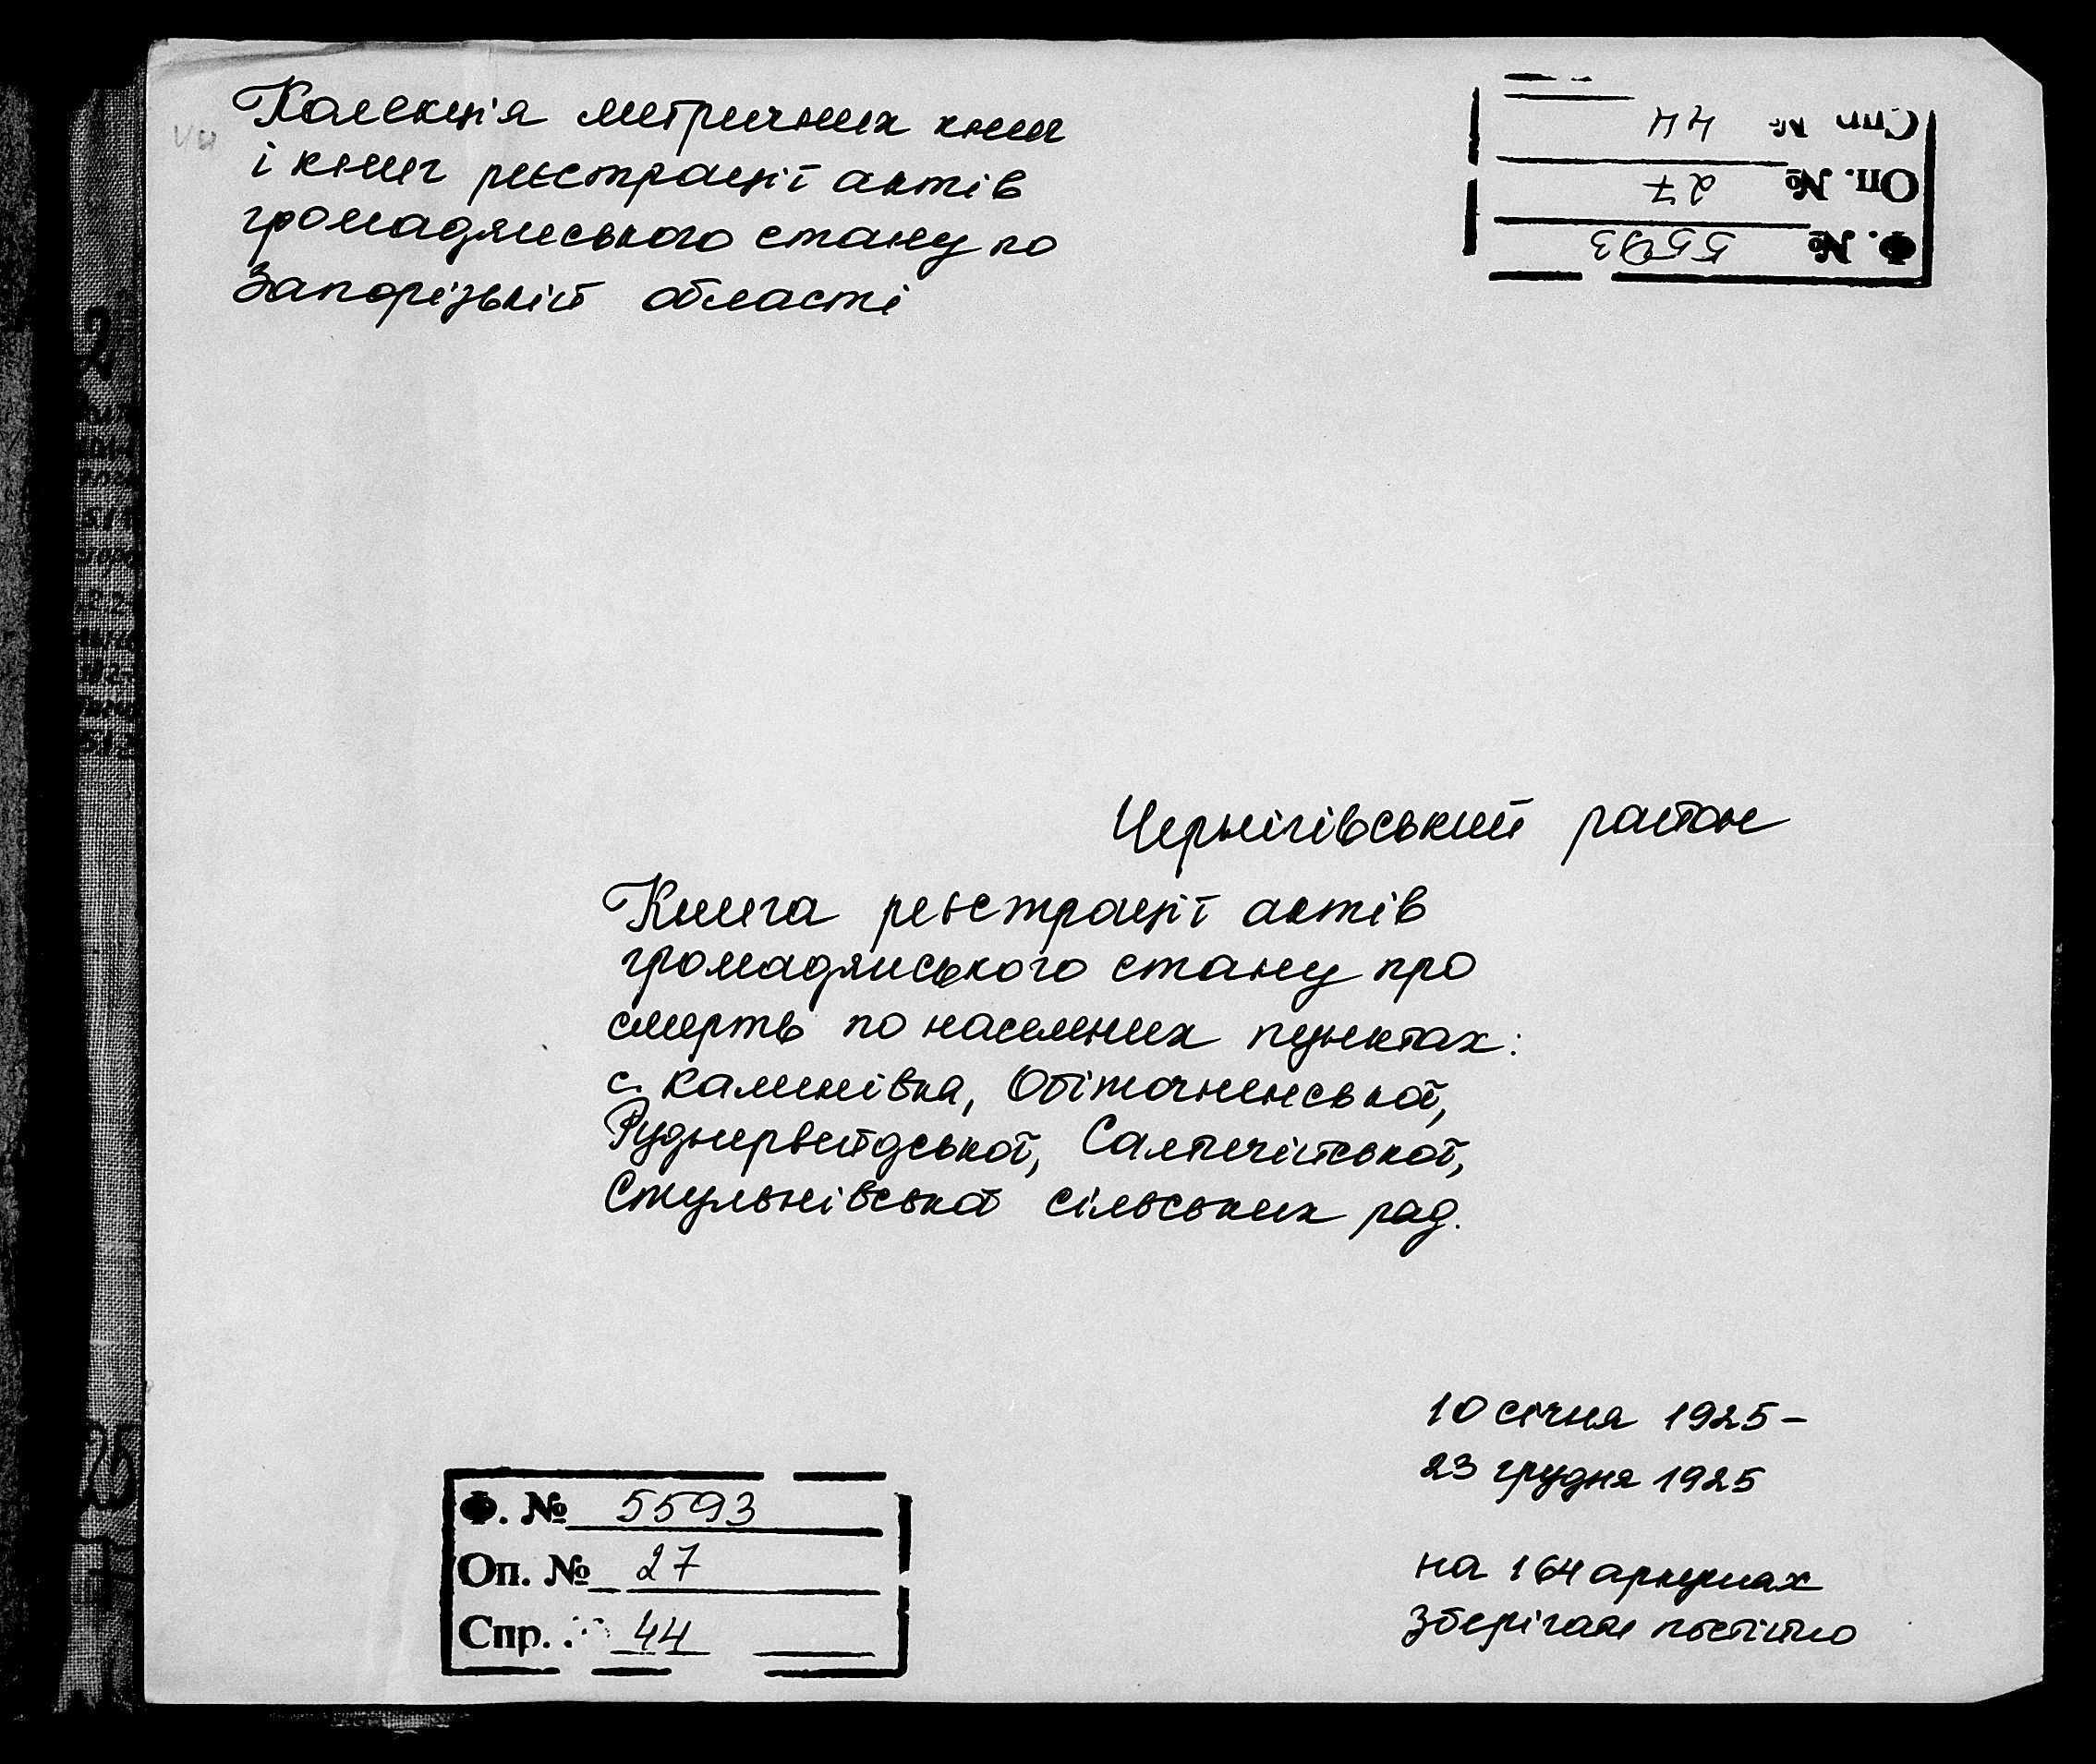 Колекція метричних книг
і книг реєстрації актів
громадянського стану по
Запорізькій області
Ф. № 5593
Оп. № 27
Спр. № 44
Чернігівський район
Книга реєстрації актів
громадянського стану про
смерть по населених пунктах:
с. Калинівка, Обіточненської,
Руднервейдської, Салтичійської,
Стульнівської сільських рад.
10 січня 1925 –
23 грудня 1925
на 164 аркушах
Зберігати постійно
Ф. № 5593
Оп. № 27
Спр. 44